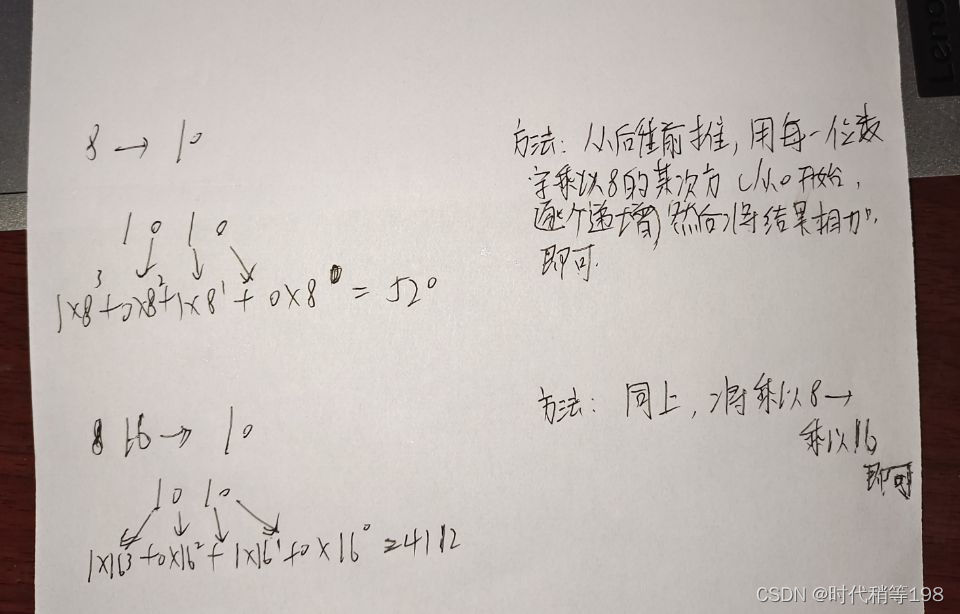 8 → 10
1 0 1 0
1×8³+0×8²+1×8¹+0×8⁰=520
方法：从后往前推，用每一位数
字乘以8的某次方（从0开始，
逐个递增）然后将结果相加
即可.
16 → 10
1 0 1 0
1×16³+0×16²+1×16¹+0×16⁰=4112
方法：同上，将乘以8→
乘以16
即可
Leno
CSDN @时代稍等198